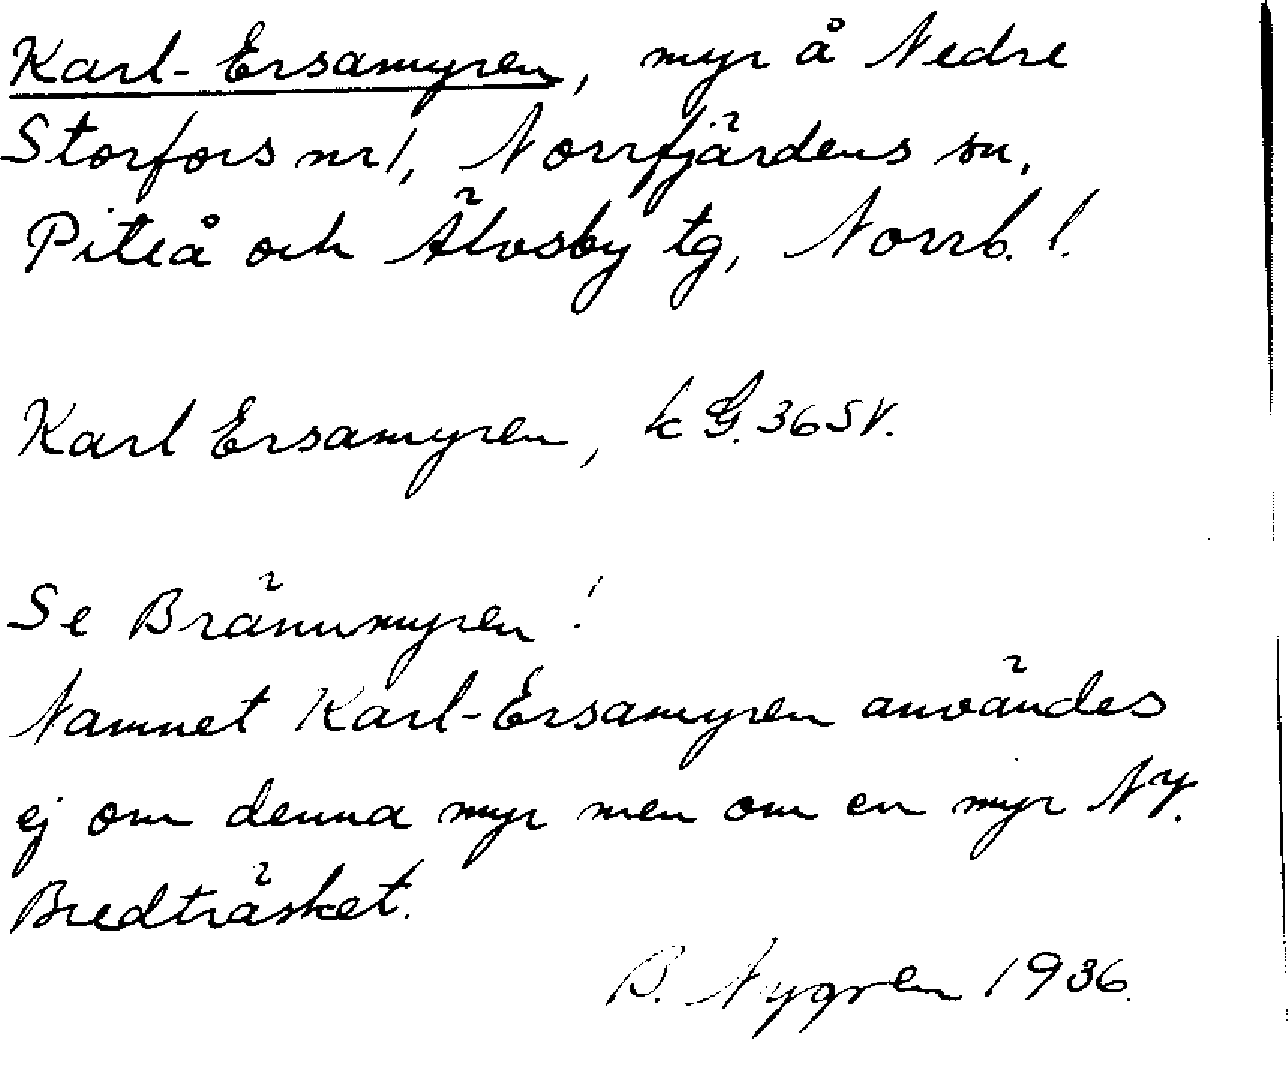 Karl-Ersamyren, myr å Nedre
Storfors nr 1, Norrfjärdens sn,
Piteå och Älvsby tg, Norrb. l.
Karl Ersamyren, k G. 36 SV.
Se Brännmyren!
Namnet Karl-Ersamyren användes
ej om denna myr men om en myr NV.
Bredträsket.
B. Nygren 1936.